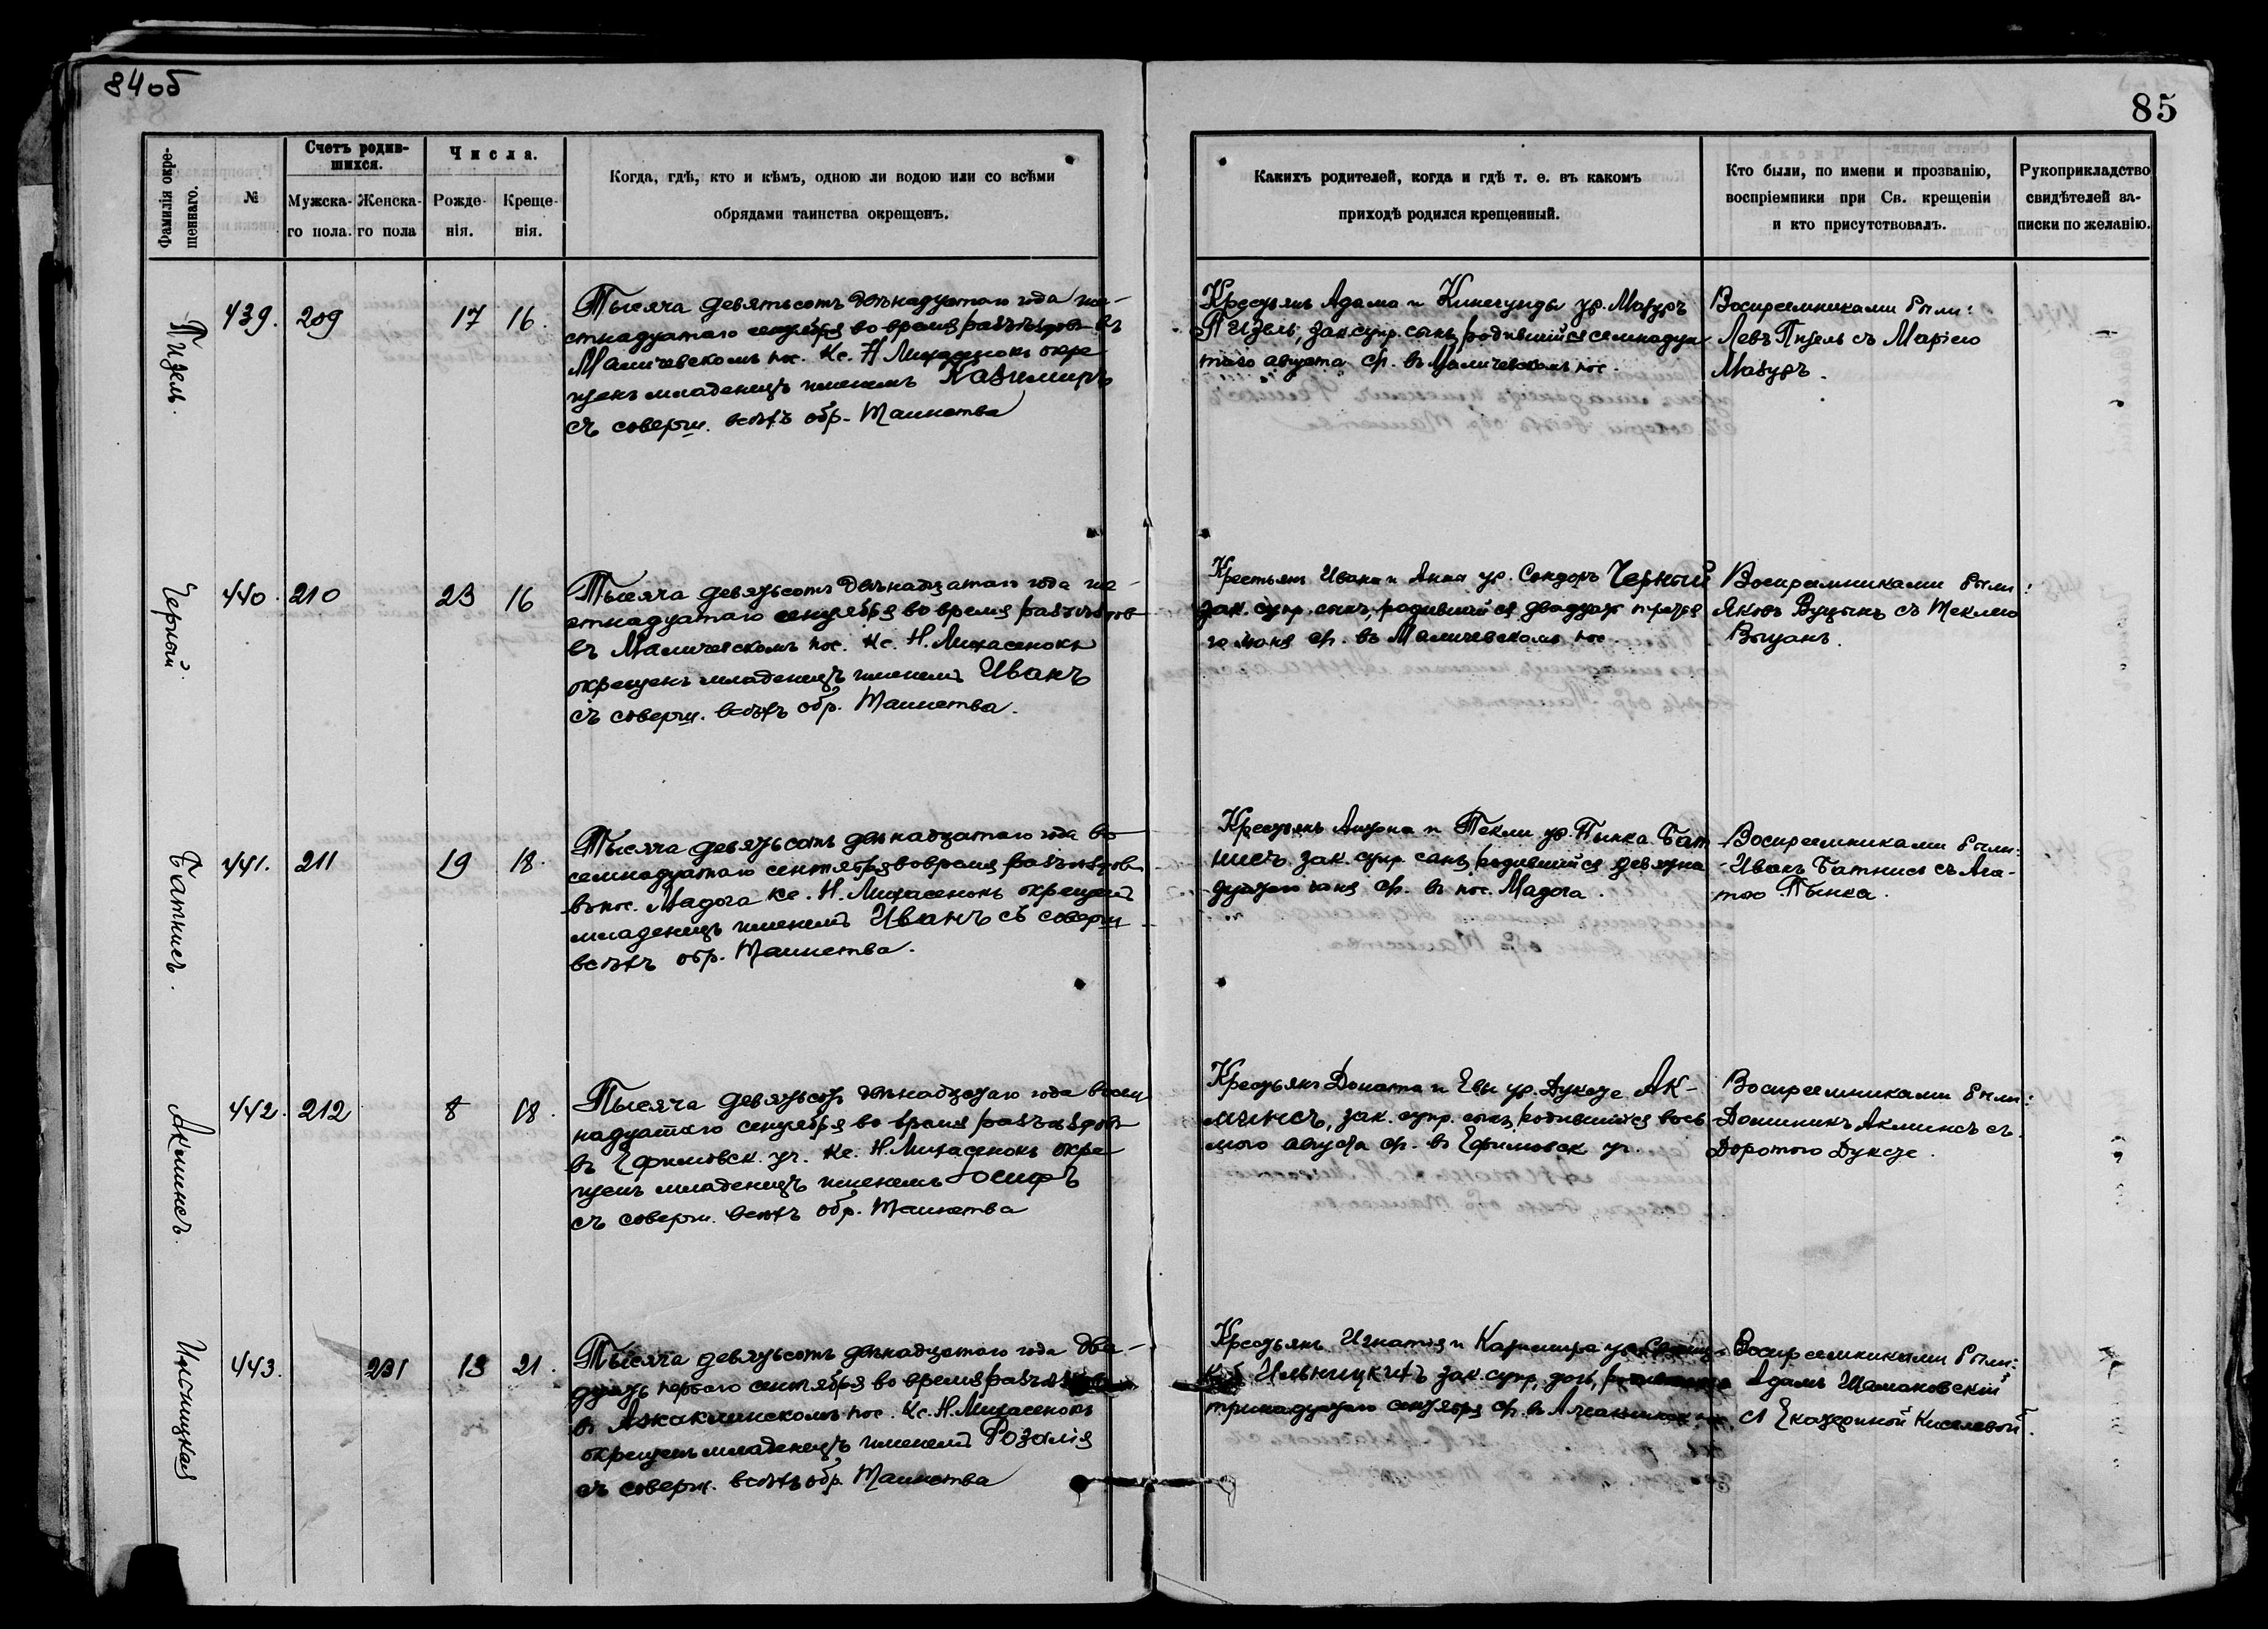 84об
85
Фамилія окре-
щеннаго.
№
Счетъ родив-
шихся.
Мужска-
го пола.
Женска-
го пола
Числа.
Рожде-
нія.
Креще-
нія.
Когда, гдѣ, кто и кѣмъ, одною ли водою или со всѣми
обрядами таинства окрещенъ.
Какихъ родителей, когда и гдѣ т. е. въ какомъ
приходѣ родился крещенный.
Кто были, по имени и прозванію,
воспріемники при Св. крещеніи
и кто присутствовалъ.
Рукоприкладство
свидѣтелей за-
писки по желанію.
Пизель.
439.
209
17
16.
Тысяча девятьсотъ двѣнадцатаго года ше-
стнадцатаго сентября во время разъѣздовъ въ
Маличевскомъ пос. Кс. Н. Михасенокъ окре
щенъ младенецъ именемъ Казимиръ
съ соверш. всѣхъ обр. Таинства
Крестьянъ Адама и Кинегунды ур. Мазуръ
Пизель, зак. супр. сынъ, родившійся семнадца
таго августа ср. въ Маличевскомъ пос.
Воспреемниками были:
Левъ Пизель съ Маріею
Мазуръ.
Черный.
440.
210
23
16
Тысяча девятьсотъ двѣнадцатаго года ше-
стнадцатаго сентября во время разъѣздов
въ Маличевскомъ пос. Кс. Н. Михасенокъ
окрещенъ младенецъ именемъ Иванъ
съ соверш. всѣхъ обр. Таинства.
Крестьянъ Ивана и Анны ур. Сондоръ Черный
зак. супр. сынъ, родившійся двадцать третья
го іюня ср. въ Маличевскомъ пос.
Воспреемниками были:
Яковъ съ Теклею
Батнисъ.
441.
211
19
18.
Тысяча девятьсотъ двѣнадцатаго года во
семнадцатаго сентября во время разъѣздов
въ пос. Мадога кс. Н. Михасенокъ окрещенъ
младенецъ именемъ Иванъ съ соверш
всѣхъ обр. Таинства.
Крестьянъ Антона и Текли ур. Пынка Бат
нисъ, зак. супр. сынъ, родившійся девятна
дцатаго іюня ср. въ пос. Мадога.
Воспреемниками были:
Иванъ Батнисъ съ Ага-
тою Пынка.
Акминсъ.
442.
212
8
18.
Тысяча девятьсотъ двѣнадцатаго года восем
надцатаго сентября во время разъѣздовъ
въ Ефимовск. уч. Кс. Н. Михасенокъ окре
щенъ младенецъ именемъ Іосифъ
съ соверш. всѣхъ обр. Таинства
Крестьянъ Доната и Евы ур. Дукстe Ак-
минсъ, зак. супр. сынъ, родившійся вось
маго августа ср. въ Ефимовск уч.
Воспреемниками были:
Доминикъ Акминсъ съ
Доротою Дукстe.
Ильницкая
443.
231
13
21.
Тысяча девятьсотъ двѣнадцатаго года два-
дцать перваго сентября во время
въ пос. Кс. Н. Михасенокъ
окрещенъ младенецъ именемъ Розалія
съ соверш. всѣхъ обр. Таинства
Крестьянъ Игнатія и
Ильницкихъ зак. супр. дочь,
тринадцатаго сентября ср. въ
Воспреемниками были:
Адамъ Шамановскій
съ Екатериной Киселевой.